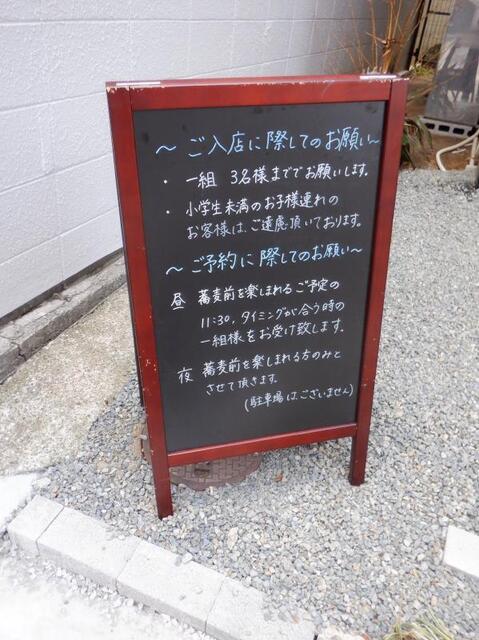 ～ ご入店に際してのお願い～
・ 一組 3名様まででお願いします。
・ 小学生未満のお子様連れの
お客様は、ご遠慮頂いております。
～ご予約に際してのお願い～
昼 蕎麦前を楽しまれるご予定の
11:30、タイミングが合う時の
一組様をお受け致します。
夜 蕎麦前を楽しまれる方のみと
させて頂きます。
(駐車場はございません)